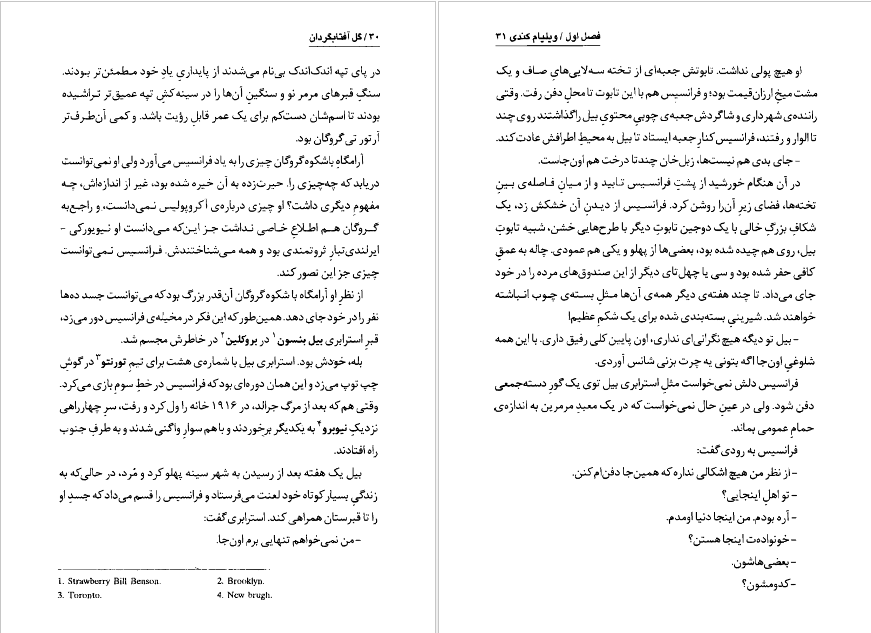 ۳۰ / گل آفتابگردان
در پای تپه اندک‌اندک بی‌نام می‌شدند از پایداریِ یادِ خود مطمئن‌تر بودند.
سنگِ قبرهای مرمر نو و سنگینِ آن‌ها را در سینه‌کشِ تپه عمیق‌تر تراشیده
بودند تا اسم‌شان دست‌کم برای یک عمر قابلِ رؤیت باشد. و کمی آن‌طرف‌تر
آرتور تی گروگان بود.
آرامگاهِ باشکوه گروگان چیزی را به یاد فرانسیس می‌آورد ولی او نمی‌توانست
دریابد که چه‌چیزی را. حیرت‌زده به آن خیره شده بود، غیر از اندازه‌اش، چه
مفهوم دیگری داشت؟ او چیزی درباره‌ی آکروپولیس نمی‌دانست، و راجع‌به
گروگان هم اطلاع خاصی نداشت جز این‌که می‌دانست او نیویورکی -
ایرلندی‌تبارِ ثروتمندی بود و همه می‌شناختندش. فرانسیس نمی‌توانست
چیزی جز این تصور کند.
از نظرِ او آرامگاه با شکوه گروگان آن‌قدر بزرگ بود که می‌توانست جسد ده‌ها
نفر را در خود جای دهد. همین‌طور که این فکر در مخیله‌ی فرانسیس دور می‌زد،
قبرِ استرابری بیل بنسون۱ در بروکلین۲ در خاطرش مجسم شد.
بله، خودش بود. استرابری بیل با شماره‌ی هشت برای تیمِ تورنتو۳ در گوشِ
چپ توپ می‌زد و این همان دوره‌ای بود که فرانسیس در خطِ سوم بازی می‌کرد.
وقتی هم که بعد از مرگ جرالد، در ۱۹۱۶ خانه را ول کرد و رفت، سرِ چهارراهی
نزدیکِ نیوبرو۴ به یکدیگر برخوردند و با هم سوارِ واگنی شدند و به طرفِ جنوب
راه افتادند.
بیل یک هفته بعد از رسیدن به شهر سینه پهلو کرد و مُرد، در حالی‌که به
زندگیِ بسیار کوتاه خود لعنت می‌فرستاد و فرانسیس را قسم می‌داد که جسدِ او
را تا قبرستان همراهی کند. استرابری گفت:
-من نمی‌خواهم تنهایی برم اون‌جا.
1. Strawberry Bill Benson. 2. Brooklyn.
3. Toronto. 4. New brugh.
فصل اول / ویلیام کندی ۳۱
او هیچ پولی نداشت. تابوتش جعبه‌ای از تخته سه‌لایی‌هایِ صاف و یک
مشت میخِ ارزان‌قیمت بود؛ و فرانسیس هم با این تابوت تا محلِ دفن رفت. وقتی
راننده‌ی شهرداری و شاگردش جعبه‌ی چوبیِ محتویِ بیل را گذاشتند روی چند
تا الوار و رفتند، فرانسیس کنارِ جعبه ایستاد تا بیل به محیطِ اطرافش عادت کند.
-جای بدی هم نیست‌ها، زبل‌خان چندتا درخت هم اون‌جاست.
در آن هنگام خورشید از پشتِ فرانسیس تابید و از میانِ فاصله‌ی بینِ
تخته‌ها، فضای زیرِ آن‌را روشن کرد. فرانسیس از دیدنِ آن خشکش زد، یک
شکافِ بزرگِ خالی با یک دوجین تابوتِ دیگر با طرح‌هایی خشن، شبیه تابوتِ
بیل، روی هم چیده شده بود، بعضی‌ها از پهلو و یکی هم عمودی. چاله به عمقِ
کافی حفر شده بود و سی یا چهل‌تای دیگر از این صندوق‌های مرده را در خود
جای می‌داد. تا چند هفته‌ی دیگر همه‌ی آن‌ها مثلِ بسته‌ی چوب انباشته
خواهند شد. شیرینیِ بسته‌بندی شده برای یک شکمِ عظیم!
-بیل تو دیگه هیچ نگرانی‌ای نداری، اون پایین کلی رفیق داری. با این همه
شلوغیِ اون‌جا اگه بتونی یه چرت بزنی شانس آوردی.
فرانسیس دلش نمی‌خواست مثلِ استرابری بیل توی یک گورِ دسته‌جمعی
دفن شود. ولی در عینِ حال نمی‌خواست که در یک معبدِ مرمرین به اندازه‌ی
حمامِ عمومی بماند.
فرانسیس به رودی گفت:
-از نظر من هیچ اشکالی نداره که همین‌جا دفن‌ام کنن.
-تو اهلِ اینجایی؟
-آره بودم. من اینجا دنیا اومدم.
-خونواده‌ت اینجا هستن؟
-بعضی‌هاشون.
-کدومشون؟